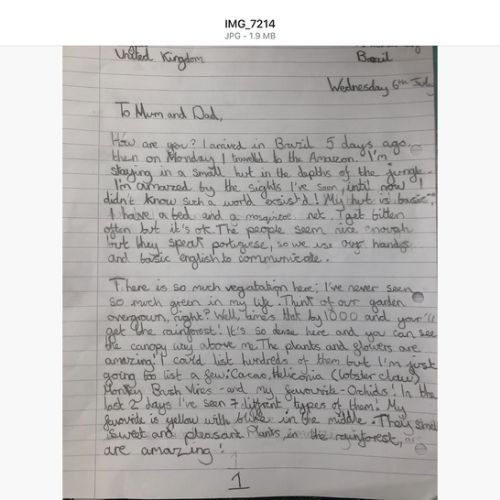 IMG_7214
JPG - 1.9 MB
United Kingdom Brazil
Wednesday 6th July
To Mum and Dad,
How are you? I arrived in Brazil 5 days ago,
then on Monday I traveled to the Amazon. I'm
staying in a small hut in the depths of the jungle.
I'm amazed by the sights I've seen, until now
didn't know such a world exsist'd! My hut is basic;
I have a bed and a mosquitoe net. I get bitten
often but it's ok. The people seem nice enough
but they speak portugese, so we use our hands
and basic english to communicate.
There is so much vegatation here; I've never seen
so much green in my life. Think of our garden
overgrown, right? Well, times that by 1000 and your'll
get the rainforest! It's so dense here and you can see
the canopy way above me. The plants and flowers are
amazing! I could list hundreds of them but I'm just
going too list a few: Cacao, Heliconia (lobster claw)
Monkey Brush Vines - and my favourite - Orchids! In the
last 2 days I've seen 7 different types of them. My
favorite is yellow with in the middle. They smell
sweet and pleasant. Plants, in the rainforest,
are amazing!
1